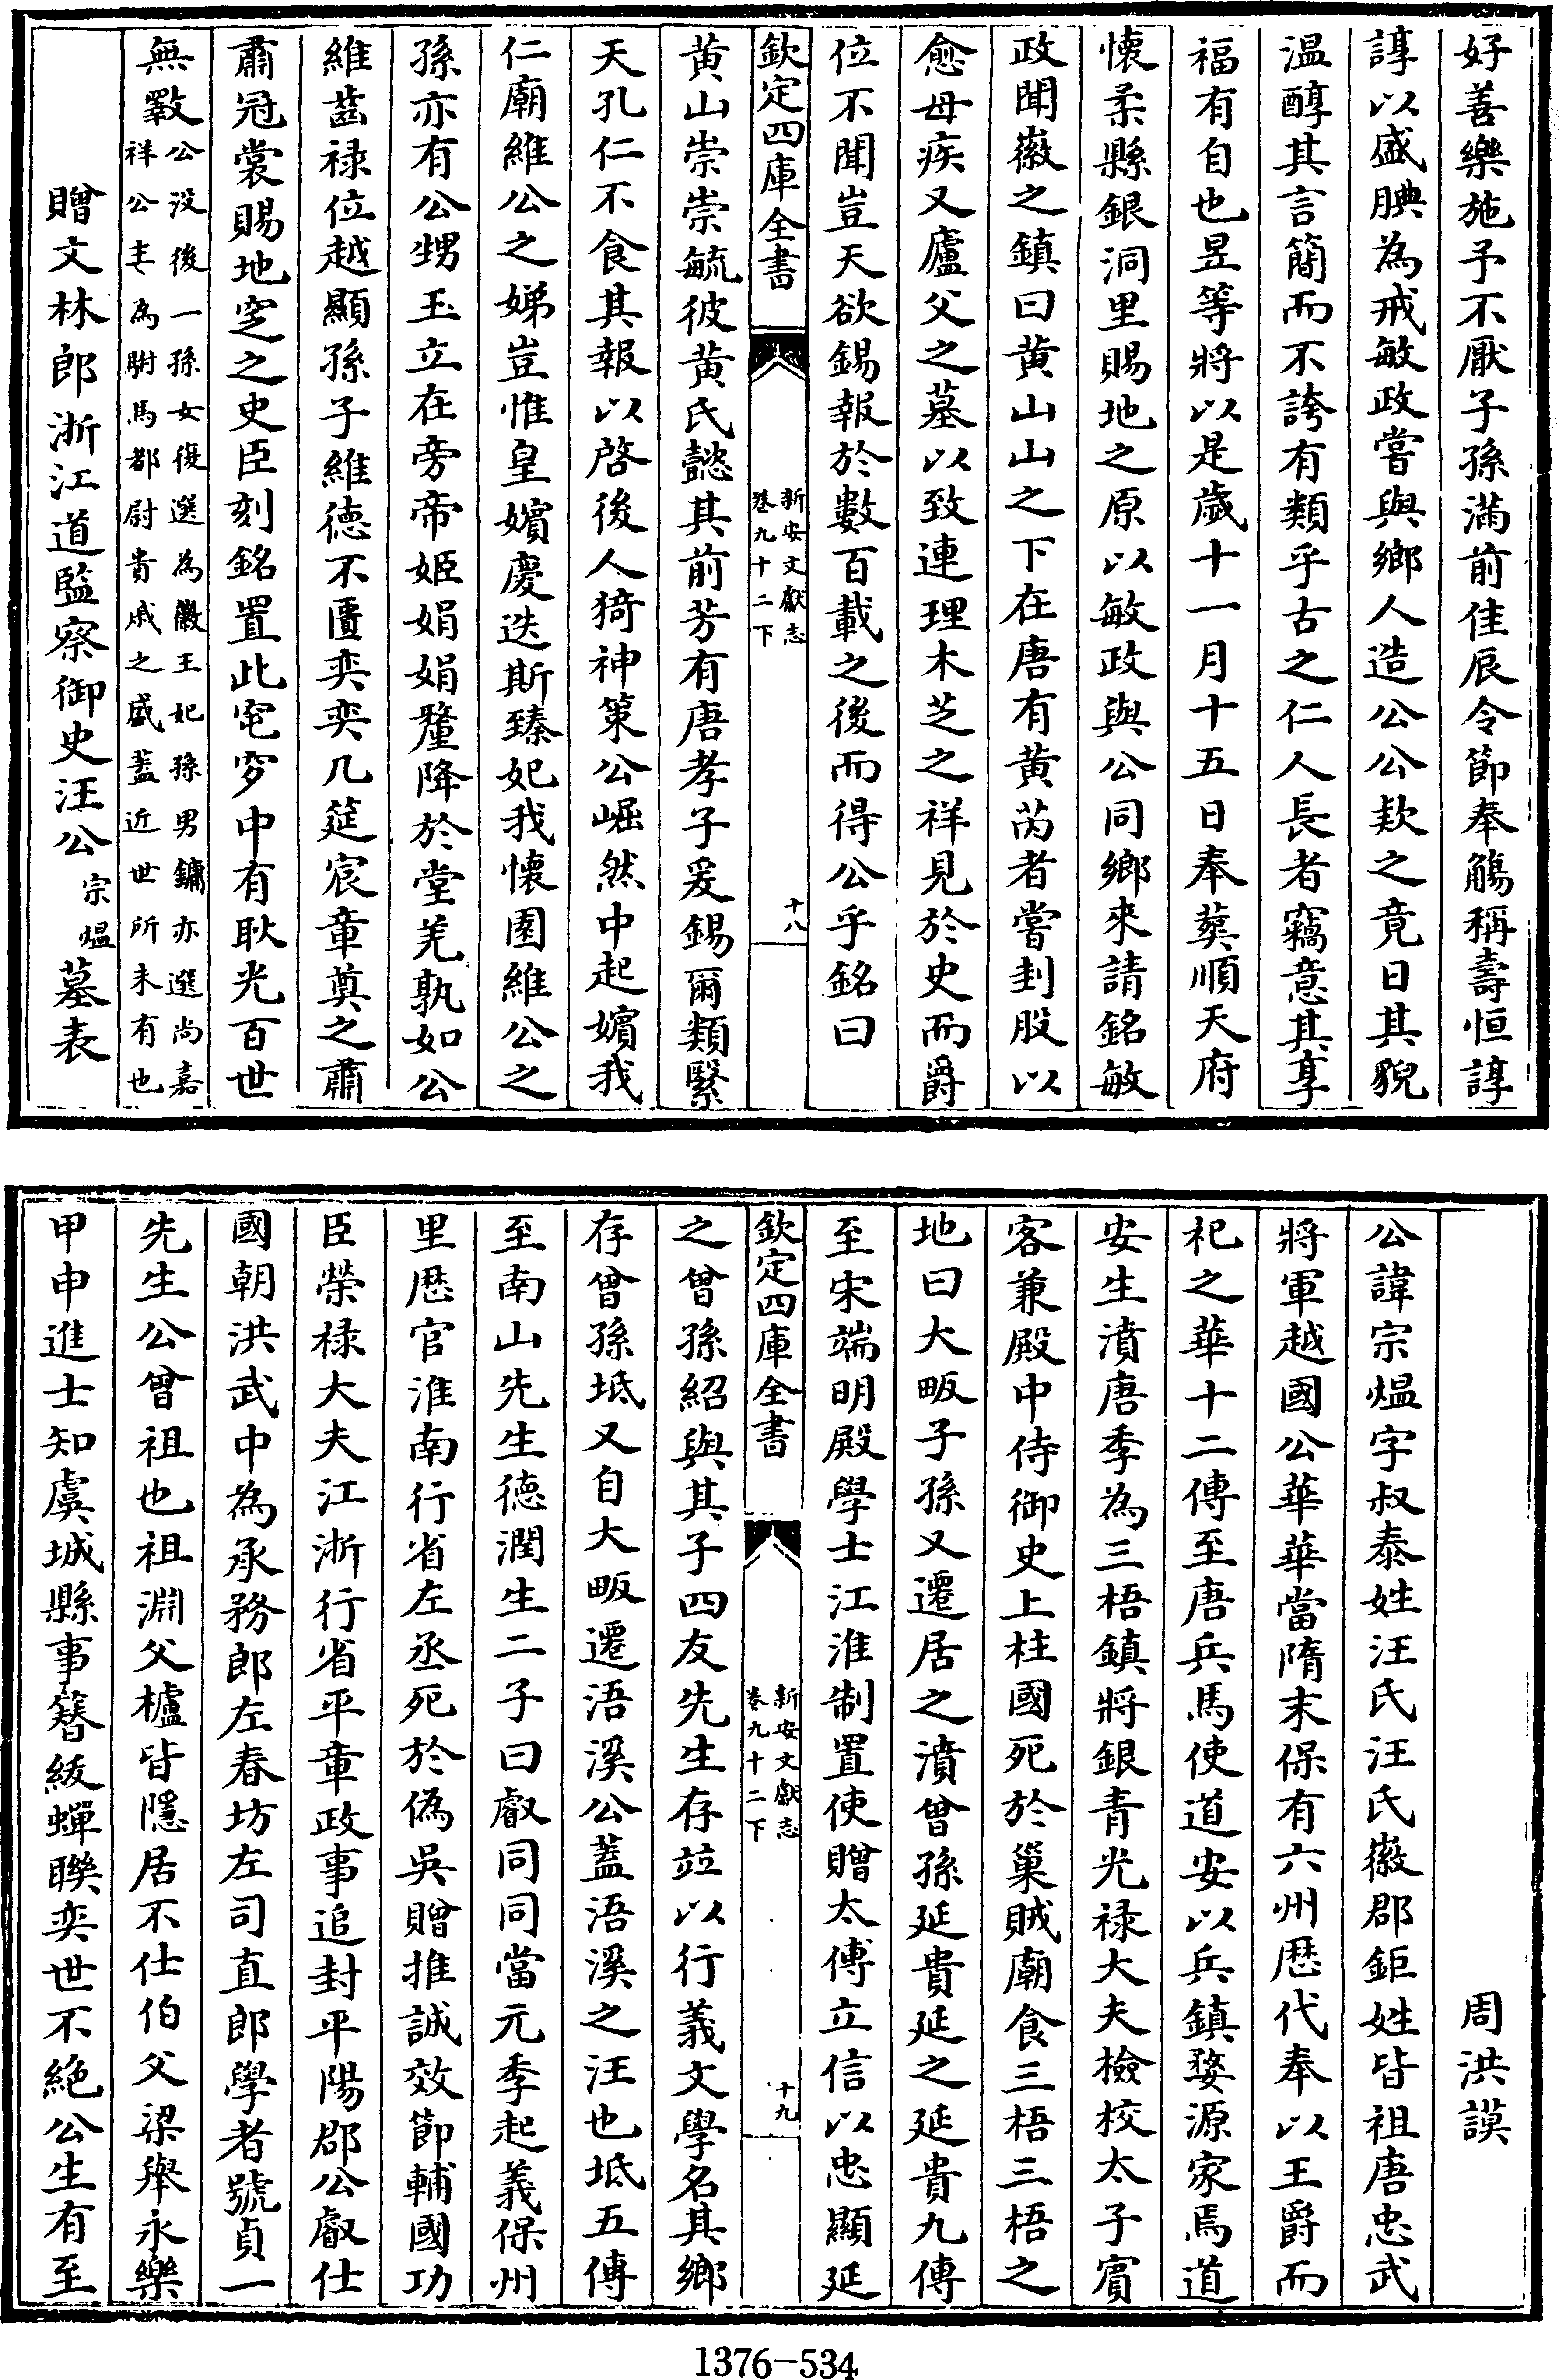 好善樂施予不厭子孫滿前佳辰令節奉觴稱壽恒諄
諄以盛腆為戒敏政嘗與鄉人造公公欵之竟日其貌
温醇其言簡而不誇有類乎古之仁人長者竊意其享
福有自也昱等將以是歲十一月十五日奉葬順天府
懷柔縣銀洞里賜地之原以敏政與公同鄉來請銘敏
政聞徽之鎮曰黄山山之下在唐有黄芮者嘗刲股以
愈母疾又廬父之墓以致連理木芝之祥見於史而爵
位不聞豈天欲錫報於數百載之後而得公乎銘曰
欽定四庫全書
新安文獻志
卷九十二下
十八
黄山崇崇毓彼黄氏懿其前芳有唐孝子爰錫爾類緊
天孔仁不食其報以啓後人猗神策公崛然中起嬪我
仁廟維公之娣豈惟皇嬪慶迭斯臻妃我懷園維公之
孫亦有公甥玉立在旁帝姬娟娟釐降於堂羌孰如公
維茲禄位越顯孫子維德不匱奕奕几筵宸章奠之肅
肅冠裳賜地窆之史臣刻銘置此宅穸中有耿光百世
無斁
公没後一孫女復選為徽王妃孫男鏞亦選尚嘉
祥公主為駙馬都尉貴戚之盛蓋近世所未有也
贈文林郎浙江道監察御史汪公宗熅墓表
周洪謨
公諱宗熅字叔泰姓汪氏汪氏徽郡鉅姓皆祖唐忠武
將軍越國公華華當隋末保有六州歴代奉以王爵而
祀之華十二傳至唐兵馬使道安以兵鎮婺源家焉道
安生濆唐季為三梧鎮將銀青光禄大夫檢校太子賓
客兼殿中侍御史上柱國死於巢賊廟食三梧三梧之
地曰大畈子孫又遷居之濆曾孫延貴延之延貴九傳
至宋端明殿學士江淮制置使贈太傅立信以忠顯延
欽定四庫全書
新安文獻志
卷九十二下
十九
之曾孫紹與其子四友先生存竝以行義文學名其鄉
存曾孫坻又自大畈遷浯溪公蓋浯溪之汪也坻五傳
至南山先生德潤生二子曰叡同同當元季起義保州
里歴官淮南行省左丞死於偽吳贈推誠效節輔國功
臣榮禄大夫江淛行省平章政事追封平陽郡公叡仕
國朝洪武中為承務郎左春坊左司直郎學者號貞一
先生公曾祖也祖淵父櫨皆隱居不仕伯父梁舉永樂
甲申進士知虞城縣事簪紱蟬聯奕世不絶公生有至
1376-534